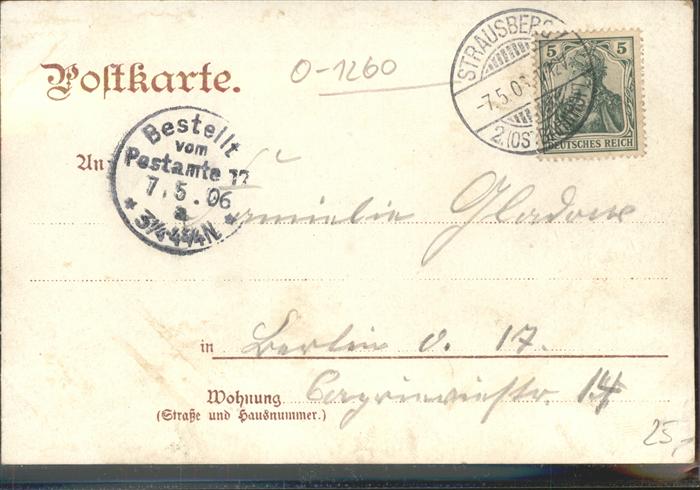 Postkarte.
O-1260
STRAUSBERG
-7.5.06
2.(OSTBAHNHOF)
5 5
DEUTSCHES REICH
Bestellt
vom
Postamte 17
7.5.06
a
* 3¼-4¼N. *
An
Familie Gladow
in Berlin O. 17.
Wohnung 14
(Straße und Hausnummer.)
25,-